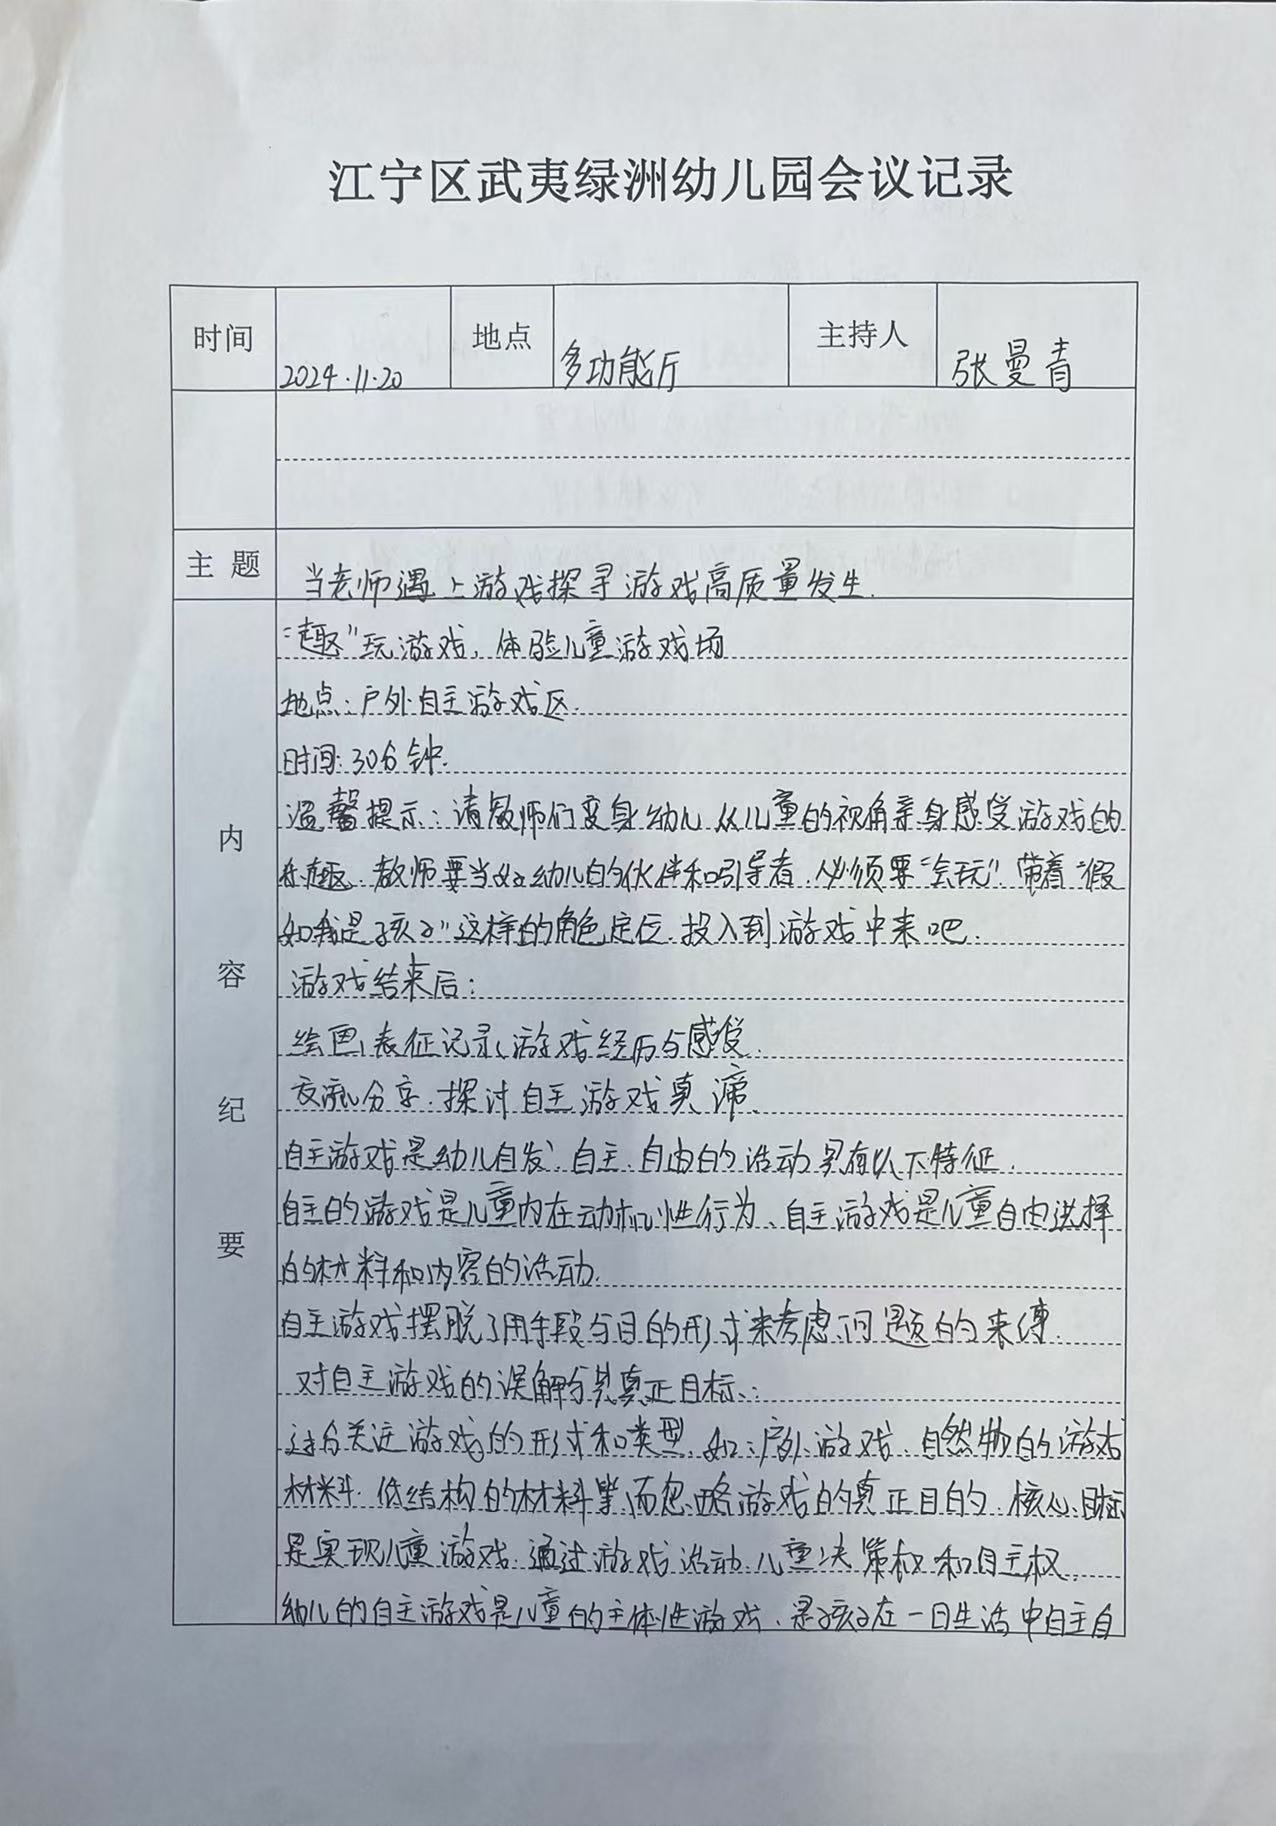 江宁区武夷绿洲幼儿园会议记录
时间 2024.11.20 地点 多功能厅 主持人 张曼青
主题 当老师遇上游戏探寻游戏高质量发生.
内容纪要
“趣”玩游戏,体验儿童游戏场
地点:户外自主游戏区.
时间:30分钟.
温馨提示:请教师们变身幼儿 从儿童的视角亲身感受游戏的
乐趣.教师要当好幼儿的伙伴和引导者,必须要“会玩”.带着“假
如我是孩子”这样的角色定位.投入到游戏中来吧.
游戏结束后:
绘画、表征记录、游戏经历与感受.
交流分享.探讨自主游戏真谛.
自主游戏是幼儿自发、自主、自由的活动 具有以下特征.
自主的游戏是儿童内在动机性行为、自主游戏是儿童自由选择
的材料和内容的活动.
自主游戏摆脱了用手段与目的形式来考虑问题的束缚.
对自主游戏的误解与其真正目标:
过分关注游戏的形式和类型,如:户外游戏、自然物的游戏
材料.低结构的材料等,而忽略游戏的真正目的.核心目标
是实现儿童游戏.通过游戏活动.儿童决策权和自主权.
幼儿的自主游戏是儿童的主体性游戏.是孩子在一日生活中自主自